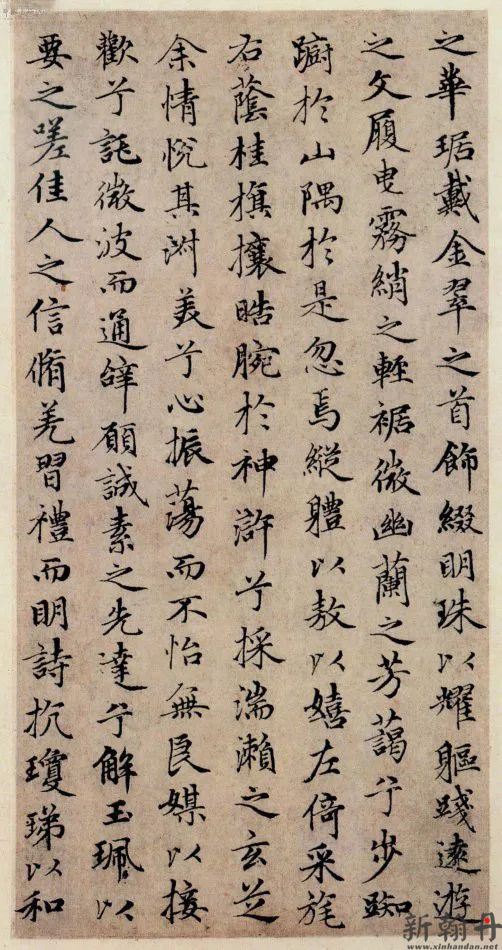 之華琚戴金翠之首飾綴明珠以耀軀踐遠遊
之文履曳霧綃之輕裾微幽蘭之芳藹兮步踟
躕於山隅於是忽焉縱軆以敖以嬉左倚采旄
右蔭桂旗攘晧腕於神滸兮採湍瀨之玄芝
余情悅其淑美兮心振蕩而不怡無良媒以接
歡兮託微波而通辭願誠素之先達兮解玉珮以
要之嗟佳人之信脩羌習禮而明詩抗瓊珶以和
新翰丹
www.xinhandan.net